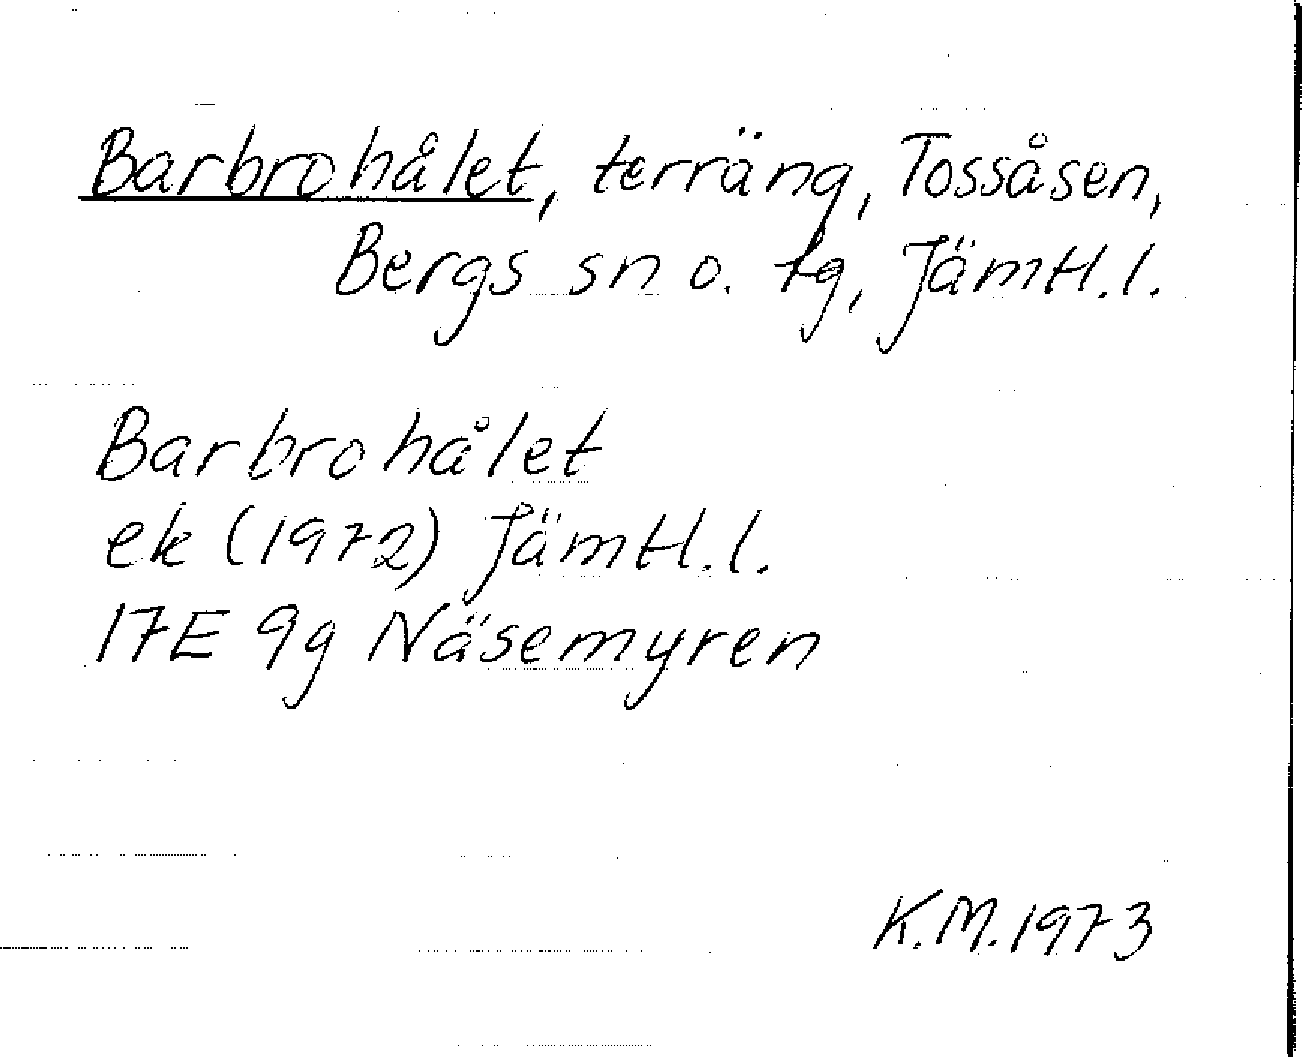 Barbrohålet, terräng, Tossåsen,
Bergs sn o. tg, Jämtl.l.
Barbrohålet
ek (1972) Jämtl.l.
17E 9g Näsemyren
K.M. 1973